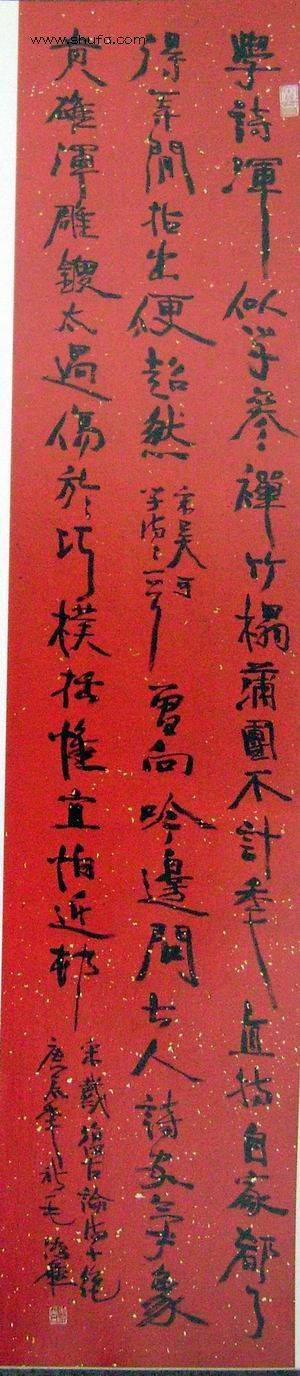 www.shufa.com
學詩渾似學參禪竹榻蒲團不計年直待自家都了
得等閒拈出便超然宋吳可學詩一首曾向吟邊問古人詩家氣象
貴雄渾雕鎪太過傷於巧樸拙惟宜怕近村
宋戴復古論詩十絕
庚辰年